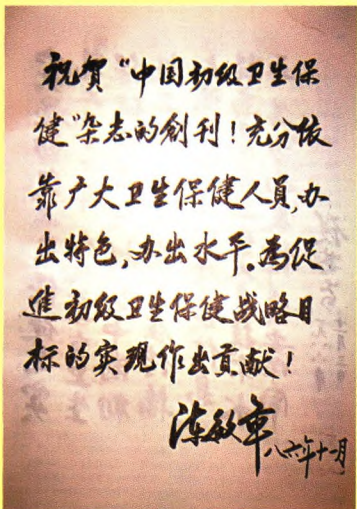 祝贺“中国初级卫生保
健”杂志的創刊！充分依
靠广大卫生保健人員，办
出特色，办出水平。為促
進初级卫生保健战略目
标的实现作出貢献！
陈敏章
八六年十一月